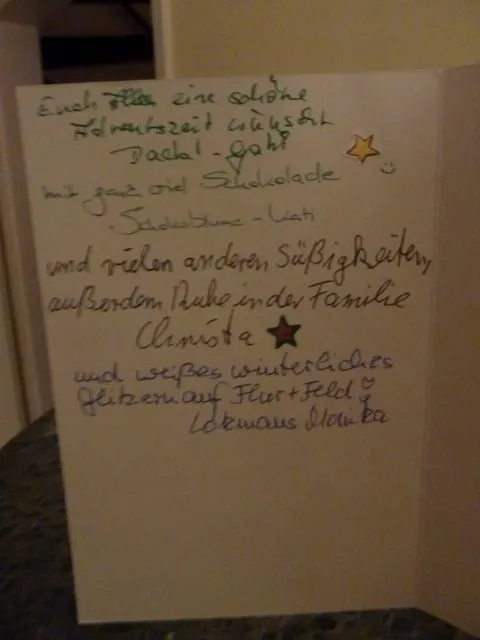 Euch Allen eine schöne
Adventszeit wünscht
Dackl - Gabi
mit ganz viel Schokolade
Schokoblume - Kati
und vielen anderen Süßigkeiten,
außerdem Ruhe in der Familie
Christa
und weißes winterliches
Glitzern auf Flur + Feld
Lokmaus Monika